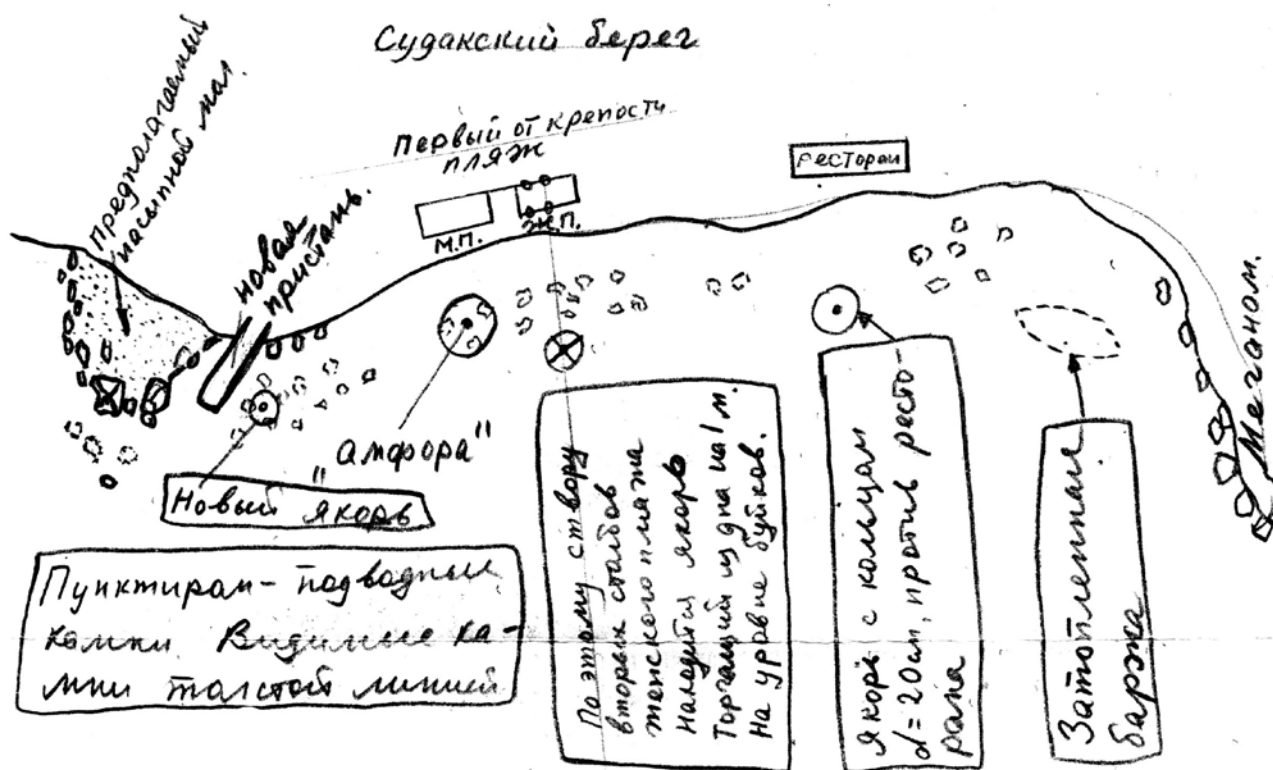 Судакский берег
Предполагаемый
насыпной мол.
новая
пристань.
Первый от крепости
пляж
М.П.
Ж.П.
ресторан
Меганом.
"Амфора"
Новый якорь
Пунктиром - подводные
камни. Видимые ка-
мни толстой линией
По этому створу
вторых столбов
женского пляжа
находится якорь
Торчащий из дна на 1 м.
На уровне буйков.
Якорь с кольцом
d=20см, против ресто-
рана
Затопленная
баржа